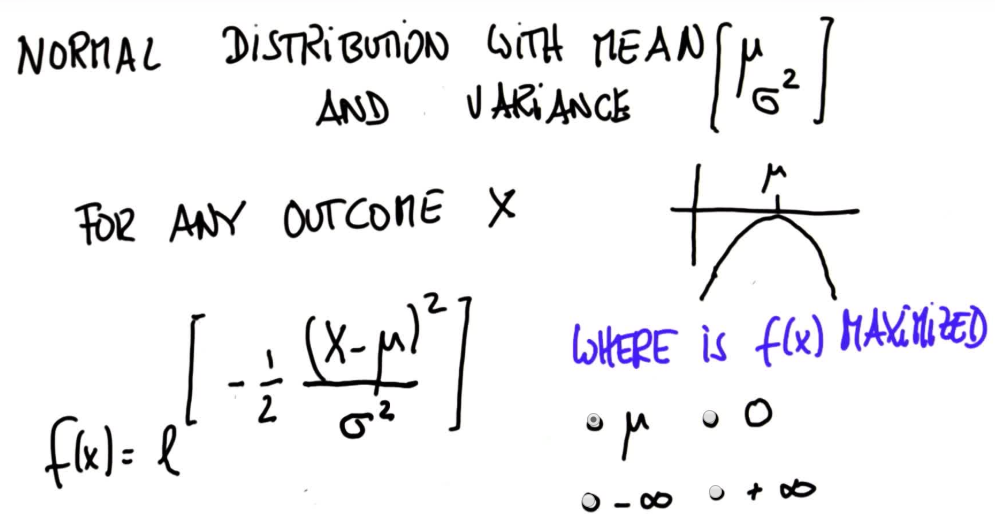 NORMAL DISTRIBUTION WITH MEAN [μ
AND VARIANCE σ²]
μ
FOR ANY OUTCOME X
f(x) = e^[-1/2 (X-μ)²/σ²]
WHERE is f(x) MAXIMIZED
μ 0
-∞ +∞